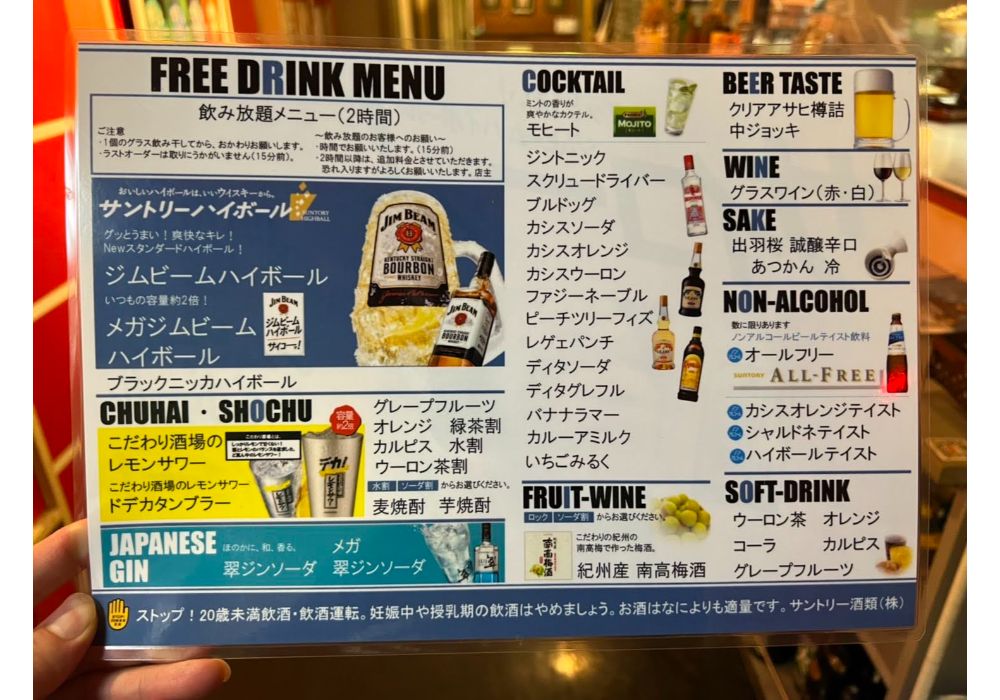 FREE DRINK MENU
飲み放題メニュー(2時間)
ご注意
・1個のグラス飲み干してから、おかわりお願いします。
・ラストオーダーは取りにうかがいません(15分前)。
～飲み放題のお客様へのお願い～
・時間でお願いいたします。(15分前)
・2時間以降は、追加料金とさせていただきます。
恐れ入りますがよろしくお願いいたします。店主
おいしいハイボールは、いいウイスキーから。
サントリーハイボール
SUNTORY
HIGHBALL
グッとうまい！爽快なキレ！
Newスタンダードハイボール！
ジムビームハイボール
いつもの容量約2倍！
メガジムビーム
ハイボール
JIM BEAM
ジムビーム
ハイボール
サイコー!
JIM BEAM
KENTUCKY STRAIGHT
BOURBON
WHISKEY
JIM BEAM
ブラックニッカハイボール
CHUHAI・SHOCHU
こだわり酒場の
レモンサワー
こだわり酒場のレモンサワー
ドデカタンブラー
容量
約2倍
デカ!
グレープフルーツ
オレンジ 緑茶割
カルピス 水割
ウーロン茶割
水割 ソーダ割 からお選びください。
麦焼酎 芋焼酎
JAPANESE
GIN
ほのかに、和、香る。
翠ジンソーダ
メガ
翠ジンソーダ
COCKTAIL
ミントの香りが
爽やかなカクテル。
モヒート
MOJITO
ジントニック
スクリュードライバー
ブルドッグ
カシスソーダ
カシスオレンジ
カシスウーロン
ファジーネーブル
ピーチツリーフィズ
レゲェパンチ
ディタソーダ
ディタグレフル
バナナラマー
カルーアミルク
いちごみるく
FRUIT-WINE
ロック ソーダ割 からお選びください。
南高梅酒
こだわりの紀州の
南高梅で作った梅酒。
紀州産 南高梅酒
BEER TASTE
クリアアサヒ樽詰
中ジョッキ
WINE
グラスワイン(赤・白)
SAKE
出羽桜 誠醸辛口
あつかん 冷
NON-ALCOHOL
数に限りあります
ノンアルコールビールテイスト飲料
オールフリー
SUNTORY ALL-FREE
カシスオレンジテイスト
シャルドネテイスト
ハイボールテイスト
SOFT-DRINK
ウーロン茶 オレンジ
コーラ カルピス
グレープフルーツ
ストップ！20歳未満飲酒・飲酒運転。妊娠中や授乳期の飲酒はやめましょう。お酒はなによりも適量です。サントリー酒類(株)